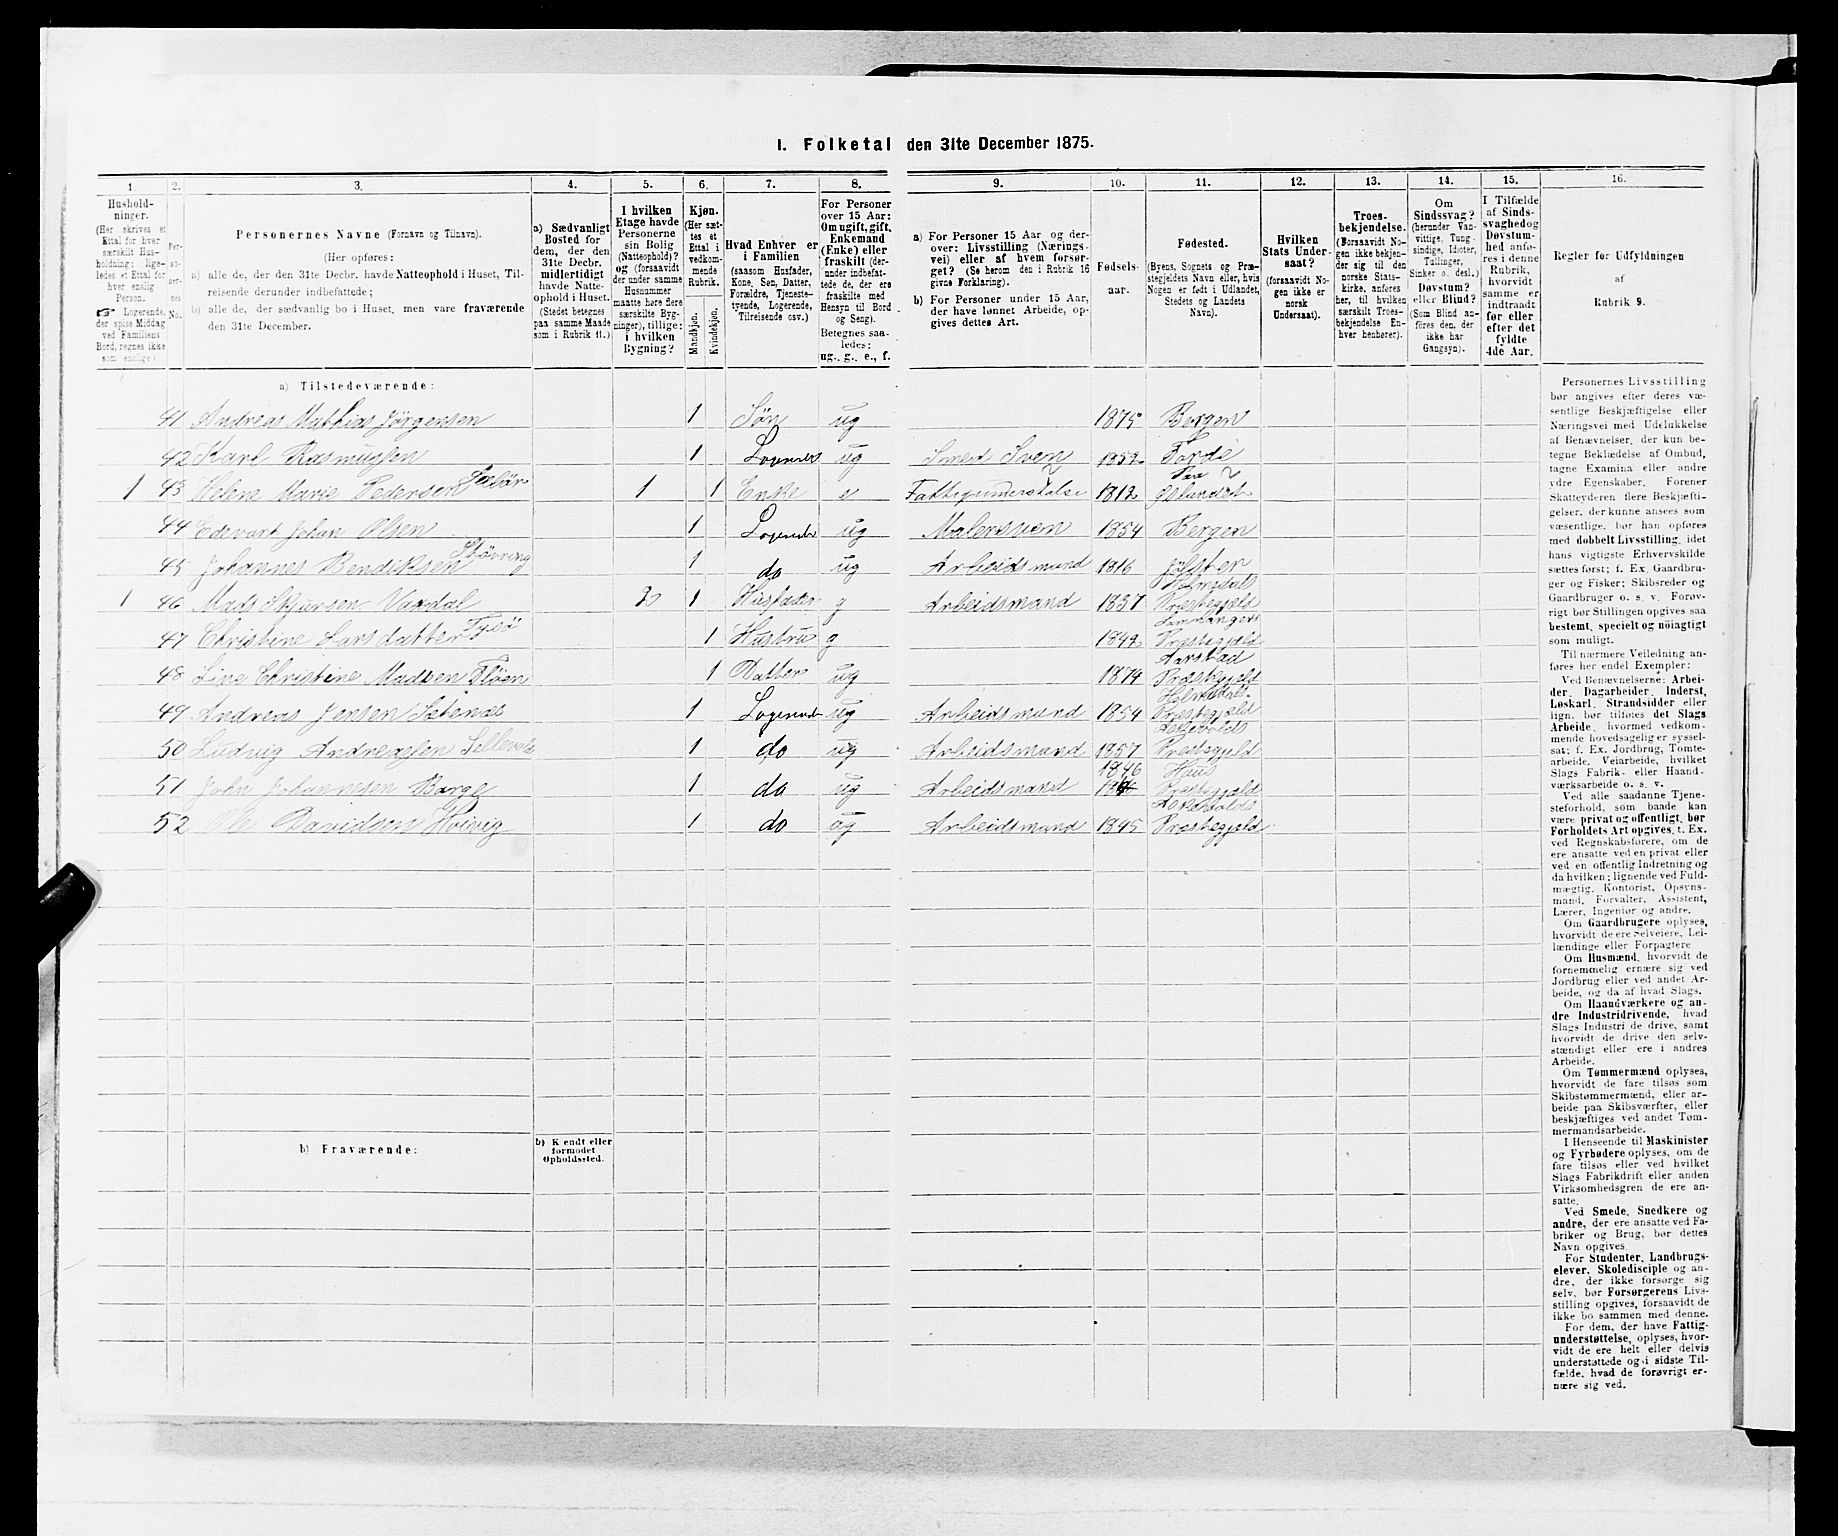 I. Folketal den 31te December 1875.
1 2. 3. 4. 5. 6. 7. 8. 9. 10. 11. 12. 13. 14. 15. 16.
Hushold-
ninger.
(Her skrives et
Ettal for hver
særskilt Hus-
holdning; lige-
ledes et Ettal for
hver enslig
Person.
☞ Logerende,
der spise Middag
ved Familiens
Bord, regnes ikke
som enslige.)
Per-
so-
ner-
nes
No.
Personernes Navne (Fornavn og Tilnavn).
(Her opføres:
a) alle de, der den 31te Decbr. havde Natteophold i Huset, Til-
reisende derunder indbefattede;
b) alle de, der sædvanlig bo i Huset, men vare fraværende
den 31te December.
a) Sædvanligt
Bosted for
dem, der den
31te Decbr.
midlertidigt
havde Natte-
ophold i Huset.
(Stedet betegnes
paa samme Maade
som i Rubrik 11.)
I hvilken
Etage havde
Personerne
sin Bolig
(Natteophold)?
og (forsaavidt
der under samme
Husnummer
maatte høre flere
særskilte Byg-
ninger), tillige:
i hvilken
Bygning?
Kjøn.
(Her sæt-
tes et
Ettal i
vedkom-
mende
Rubrik.
Mandkjøn.
Kvindekjøn.
Hvad Enhver er
i Familien
(saasom Husfader,
Kone, Søn, Datter,
Forældre, Tjeneste-
tyende, Logerende,
Tilreisende osv.)
For Personer
over 15 Aar:
Om ugift, gift,
Enkemand
(Enke) eller
fraskilt (der-
under indbefat-
tede de, der ere
fraskilte med
Hensyn til Bord
og Seng).
Betegnes saa-
ledes:
ug., g., e., f.
a) For Personer 15 Aar og der-
over: Livsstilling (Nærings-
vei) eller af hvem forsør-
get? (Se herom den i Rubrik 16
givne Forklaring).
b) For Personer under 15 Aar,
der have lønnet Arbeide, op-
gives dettes Art.
Fødsels-
aar.
Fødested.
(Byens, Sognets og Præ-
stegjeldets Navn eller, hvis
Nogen er født i Udlandet,
Stedets og Landets
Navn).
Hvilken
Stats Under-
saat?
(forsaavidt No-
gen ikke er
norsk
Undersaat).
Troes-
bekjendelse.
(Forsaavidt No-
gen ikke bekjen-
der sig til den
norske Stats-
kirke, anføres
her, til hvilken
særskilt Troes-
bekjendelse En-
hver henhører).
Om
Sindssvag?
(herunder Van-
vittige, Tung-
sindige, Idioter,
Tullinger,
Sinker o. desl.)
Døvstum?
eller Blind?
(Som Blind an-
føres den, der
ikke har
Gangsyn).
I Tilfælde
af Sinds-
svaghed og
Døvstum-
hed anfø-
res i denne
Rubrik,
hvorvidt
samme er
indtraadt
før eller
efter det
fyldte
4de Aar.
Regler før Udfyldningen
af
Rubrik 9.
a) Tilstedeværende:
41 Andreas Mathias Jørgensen 1 Søn ug 1875 Bergen
42 Karl Rasmussen 1 Logerende ug Smed Sven 1852 Førde
1 43 Helene Marie Pedersen 1 1 Enke e Fattigunderstøtelse 1812 Paa Øslandet
44 Edevart Johan Olsen 1 Logerende ug Malersven 1854 Bergen
45 Johannes Bendiksen Støvring 1 do ug Arbeidsmand 1816 Jølster
1 46 Mads Skjursen Vaxdal 1 Husfader g Arbeidsmand 1837 Præstegjeld
47 Christine Larsdatter Tysø 1 Hustru g 1842 Præstegjeld
48 Line Christine Madsen Fløen 1 Datter ug 1874 Aarstad Præstegjeld
49 Andreas Jensen Sætenæs 1 Logerende ug Arbeidsmand 1854 Præstegjeld
50 Ludvig Andreassen 1 do ug Arbeidsmand 1857 Præstegjeld
51 John Johannesen Barge 1 do ug Arbeidsmand 1846 Haus Præstegjeld
52 Ole Davidsen Hvivig 1 do ug Arbeidsmand 1845 Præstegjeld
b) Fraværende:
b) Kjendt eller
formodet
Opholdssted.
Personernes Livsstilling
bør angives efter deres væ-
sentlige Beskjæftigelse eller
Næringsvei med Udelukkelse
af Benævnelser, der kun be-
tegne Beklædelse af Ombud,
tagne Examina eller andre
ydre Egenskaber. Forener
Skatteyderen flere Beskjæfti-
gelser, der kunne ansees som
væsentlige, bør han opføres
med dobbelt Livsstilling, idet
hans vigtigste Erhvervskilde
sættes først; f. Ex. Gaardbru-
ger og Fisker; Skibsreder og
Gaardbruger o. s. v. Forøv-
rigt bør Stillingen opgives saa
bestemt, specielt og nöiagtigt
som muligt.
Til nærmere Veiledning an-
føres her endel Exempler:
Ved Benævnelserne: Arbei-
der, Dagarbeider, Inderst,
Løskarl, Strandsidder eller
lign. bør tilføies det Slags
Arbeide, hvormed vedkom-
mende hovedsagelig er syssel-
sat; f. Ex. Jordbrug, Tomte-
arbeide, Veiarbeide, hvilket
Slags Fabrik- eller Haand-
værksarbeide o. s. v.
Ved alle saadanne Tjene-
steforhold, som baade kan
være privat og offentligt, bør
Forholdets Art opgives, t. Ex.
ved Regnskabsførere, om de
ere ansatte ved en privat eller
ved en offentlig Indretning og
da hvilken; lignende ved Fuld-
mægtig, Kontorist, Opsyns-
mand, Forvalter, Assistent,
Lærer, Ingeniør og andre.
Om Gaardbrugere oplyses,
hvorvidt de ere Selveiere, Lei-
lændinge eller Forpagtere
Om Husmænd, hvorvidt de
fornemmelig ernære sig ved
Jordbrug eller ved andet Ar-
beide, og da af hvad Slags.
Om Haandværkere og an-
dre Industridrivende, hvad
Slags Industri de drive, samt
hvorvidt de drive den selv-
stændigt eller ere i andres
Arbeide.
Om Tømmermænd oplyses,
hvorvidt de fare tilsøs som
Skibstømmermænd, eller ar-
beide paa Skibsværfter, eller
beskjæftiges ved andet Tøm-
mermandsarbeide.
I Henseende til Maskinister
og Fyrbødere oplyses, om de
fare tilsøs eller ved hvilket
Slags Fabrikdrift eller anden
Virksomhedsgren de ere an-
satte.
Ved Smede, Snedkere og
andre, der ere ansatte ved Fa-
briker og Brug, bør dettes
Navn opgives
For Studenter, Landbrugs-
elever, Skoledisciple og an-
dre, der ikke forsørge sig
selv, bør Forsørgerens Livs-
stilling opgives, forsaavidt de
ikke bo sammen med denne.
For dem, der have Fattig-
understøttelse, oplyses, hvor-
vidt de ere helt eller delvis
understøttede og i sidste Til-
fælde, hvad de forøvrigt er-
nære sig ved.